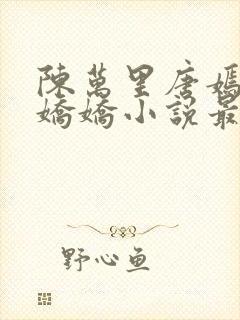 陳萬里唐嫣
嬌嬌小說最
野心鱼